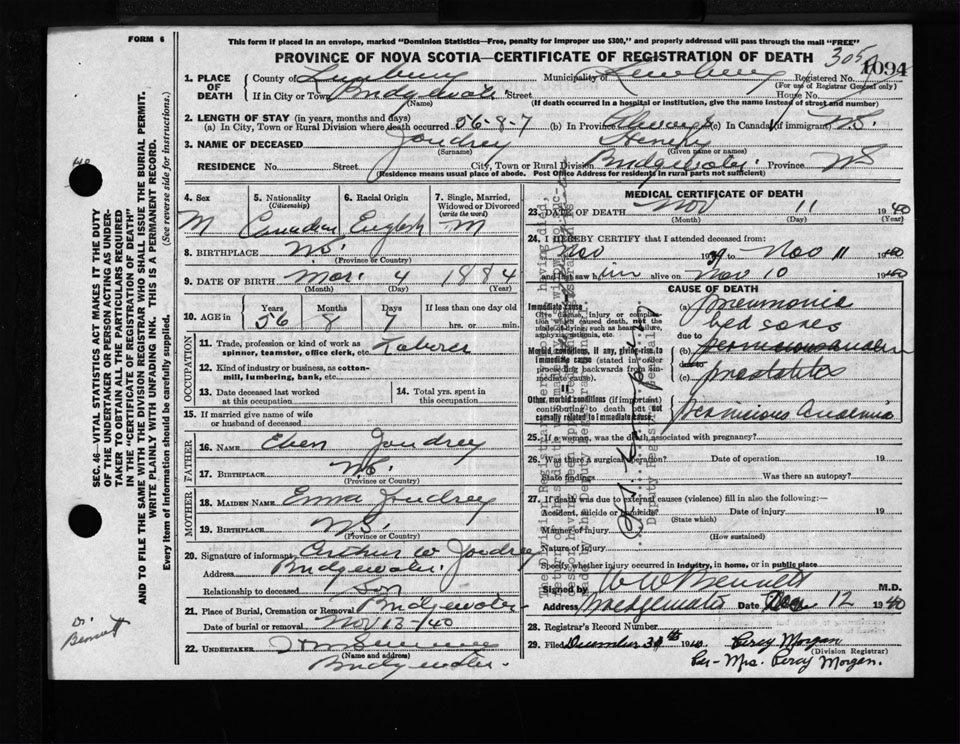 FORM 6
This form if placed in an envelope, marked "Dominion Statistics—Free, penalty for improper use $300," and properly addressed will pass through the mail "FREE"
PROVINCE OF NOVA SCOTIA—CERTIFICATE OF REGISTRATION OF DEATH
305
1094
1. PLACE OF DEATH
County of Lunenburg Municipality of Lunenburg Registered No.
(For use of Registrar General only)
If in City or Town Bridgewater Street House No.
(Name) (If death occurred in a hospital or institution, give the name instead of street and number)
2. LENGTH OF STAY (in years, months and days)
(a) In City, Town or Rural Division where death occurred 56-8-7 (b) In Province Always (c) In Canada (if immigrant) N.S.
3. NAME OF DECEASED Joudrey
(Surname) (Given name or names)
RESIDENCE No. Street City, Town or Rural Division Bridgewater Province NS
(Residence means usual place of abode. Post Office Address for residents in rural parts not sufficient)
4. Sex
M
5. Nationality
(Citizenship)
Canadian
6. Racial Origin
English
7. Single, Married, Widowed or Divorced
(write the word)
M
8. BIRTHPLACE N.S.
(Province or Country)
9. DATE OF BIRTH Mar. 4 1884
(Month) (Day) (Year)
10. AGE in Years Months Days If less than one day old
56 8 7 hrs. or min.
OCCUPATION
11. Trade, profession or kind of work as spinner, teamster, office clerk, etc. Laborer
12. Kind of industry or business, as cotton-mill, lumbering, bank, etc.
13. Date deceased last worked at this occupation
14. Total yrs. spent in this occupation
15. If married give name of wife or husband of deceased
FATHER
16. Name Eben Joudrey
17. Birthplace N.S.
(Province or Country)
MOTHER
18. Maiden Name Emma Joudrey
19. Birthplace NS.
(Province or Country)
20. Signature of informant Arthur W Joudrey
Address Bridgewater.
Relationship to deceased Son
21. Place of Burial, Cremation or Removal Bridgewater
Date of burial or removal Nov 13-/40
22. Undertaker
(Name and address)
Bridgewater.
MEDICAL CERTIFICATE OF DEATH
23. DATE OF DEATH Nov 11 1940
(Month) (Day) (Year)
24. I HEREBY CERTIFY that I attended deceased from:
Nov 1939 to Nov 11 1940
and last saw him alive on Nov 10 1940
CAUSE OF DEATH
Immediate cause
Give disease, injury or complication which caused death, not the mode of dying, such as heart failure, asphyxia, asthenia, etc.
(a) Pneumonia
bed sores
due to
Morbid conditions, if any, giving rise to immediate cause (stated in order proceeding backwards from immediate cause).
(b)
due to
(c) prostatitis
Other morbid conditions (if important) contributing to death but not causally related to immediate cause.
Pernicious Anaemia
25. If a woman, was the death associated with pregnancy?
26. Was there a surgical operation? Date of operation 19
State findings Was there an autopsy?
27. If death was due to external causes (violence) fill in also the following:—
Accident, suicide or homicide? Date of injury 19
(State which)
Manner of injury
(How sustained)
Nature of injury
Specify whether injury occurred in industry, in home, or in public place
Signed by W W Bennett M.D.
Address Bridgewater Date Nov 12 1940
28. Registrar's Record Number
29. Filed December 30th 1940 Percy Morgan
(Division Registrar)
Per- Mrs. Percy Morgan.
Deputy Registrar
SEC. 46—VITAL STATISTICS ACT MAKES IT THE DUTY
OF THE UNDERTAKER OR PERSON ACTING AS UNDERTAKER
TO OBTAIN ALL THE PARTICULARS REQUIRED
IN THE "CERTIFICATE OF REGISTRATION OF DEATH"
AND TO FILE THE SAME WITH THE DIVISION REGISTRAR WHO SHALL ISSUE THE BURIAL PERMIT.
WRITE PLAINLY WITH UNFADING INK. THIS IS A PERMANENT RECORD.
Every item of information should be carefully supplied. (See reverse side for instructions.)
Dr. Bennett